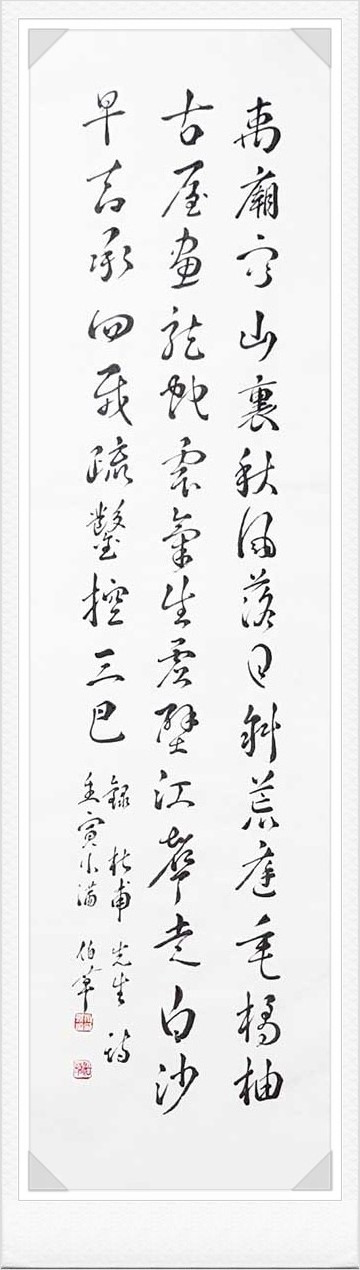 禹廟空山裏秋風落日斜荒庭垂橘柚
古屋畫龍蛇雲氣生虛壁江聲走白沙
早知乘四載疏鑿控三巴
錄杜甫先生詩
壬寅小滿 伯